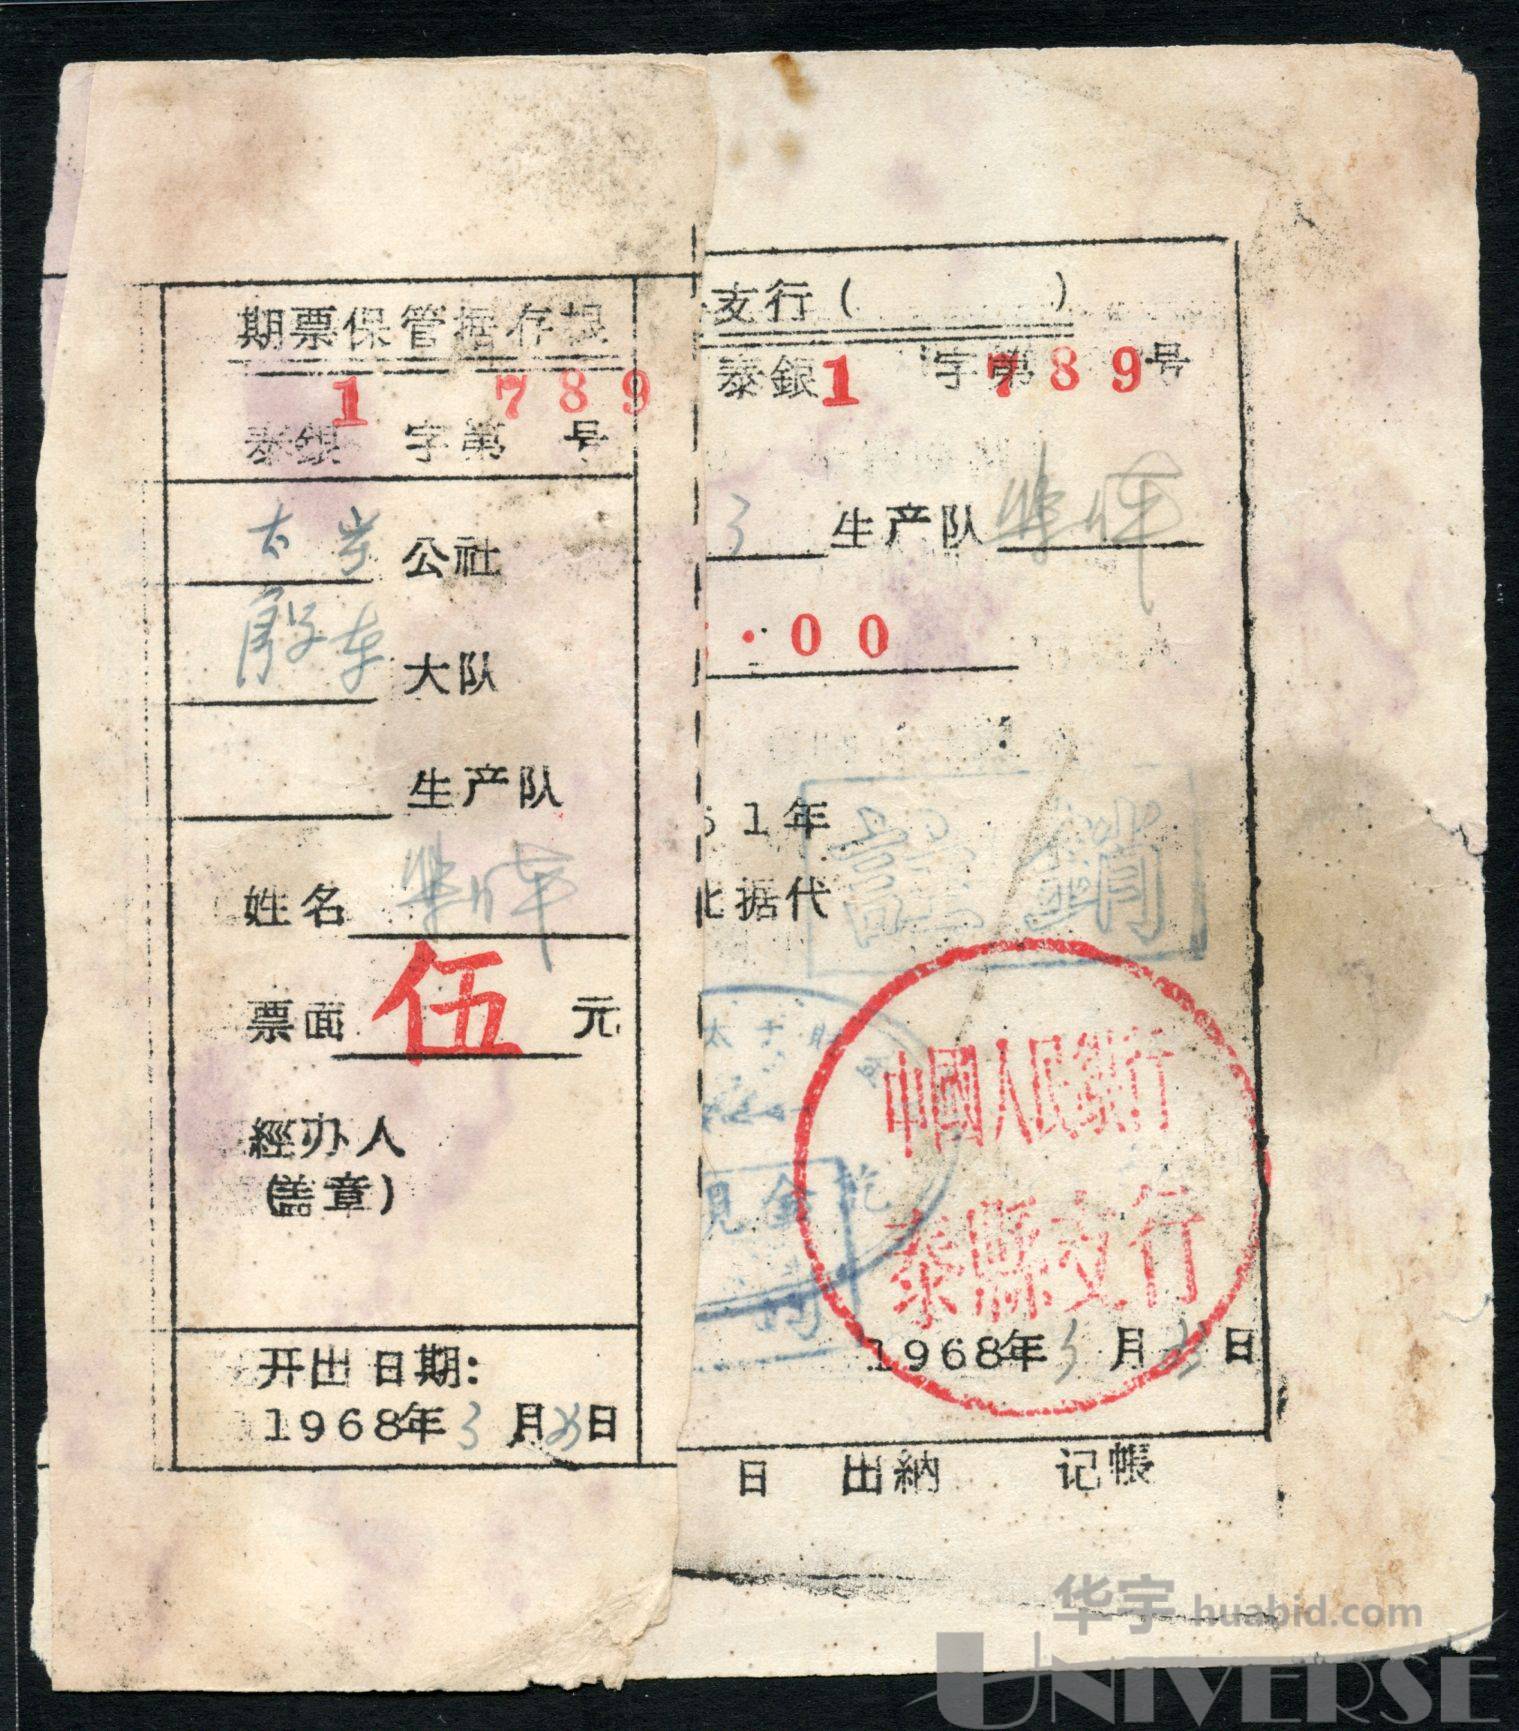 期票保管据存根
1 789
泰銀 字第 号
公社
大队
生产队
姓名
票面 伍 元
經办人
(盖章)
开出日期:
1968年3月 日
支行( )
泰銀1 字第789号
3 生产队
·00
61年
此据代
註銷
現金
中國人民銀行
泰縣支行
1968年3月 日
日 出納 记帳
华宇 huabid.com
UNIVERSE